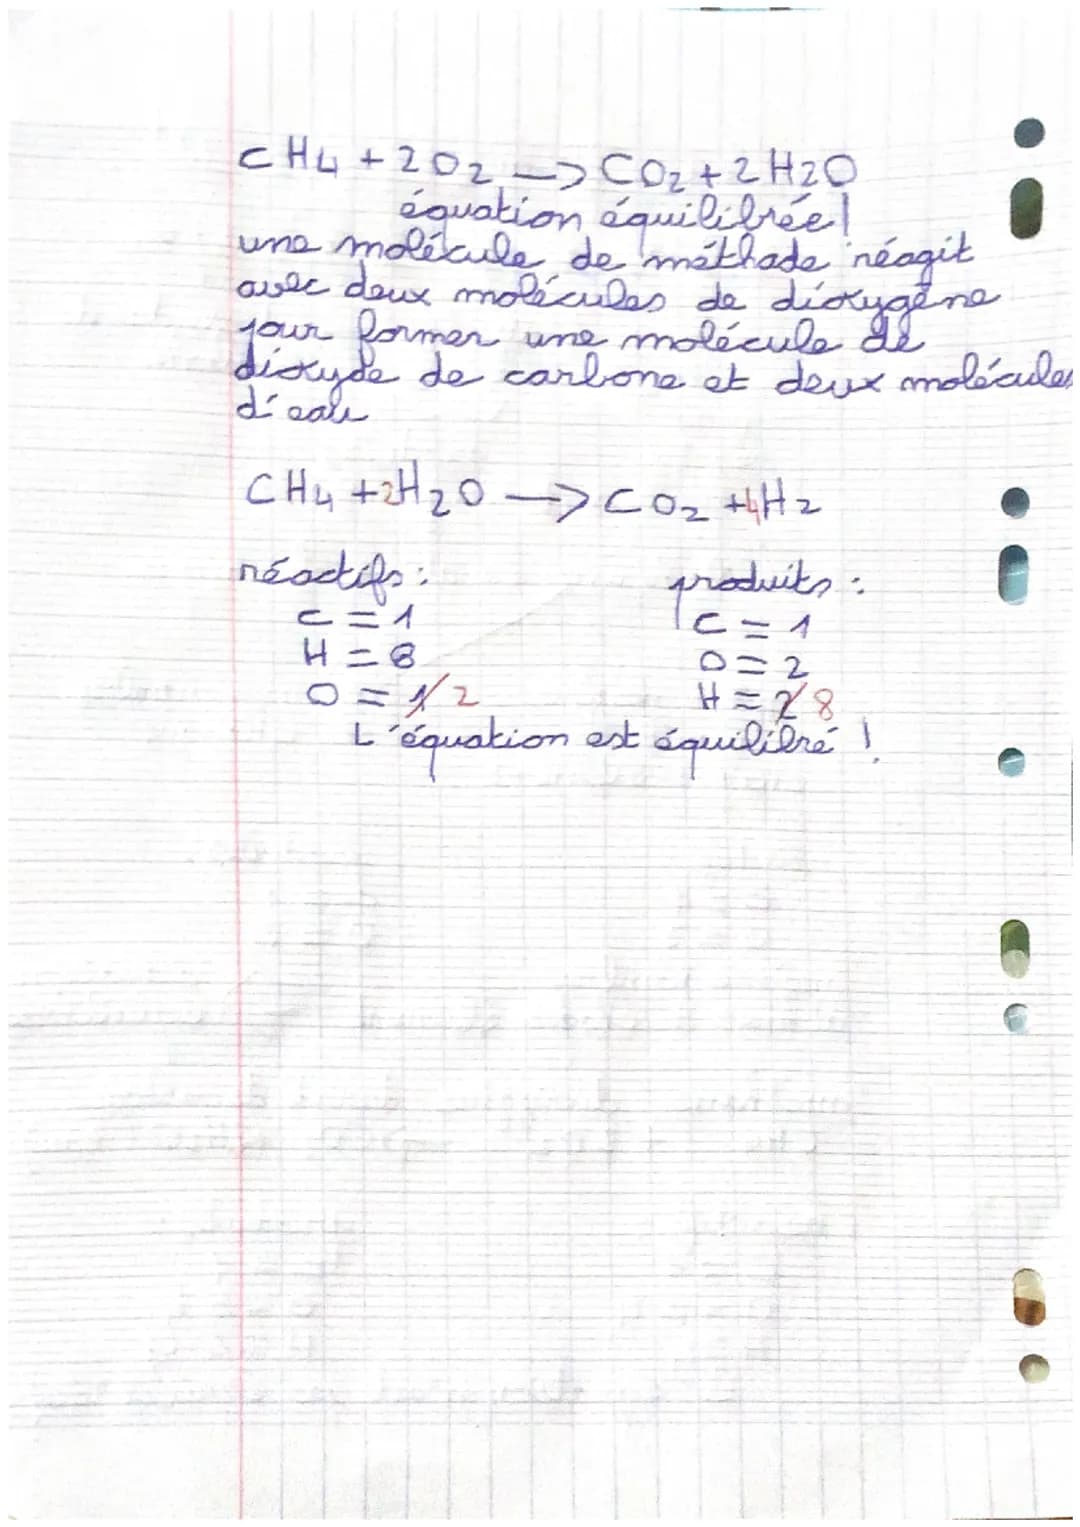 CH4 + 2O2 -> CO2 + 2H2O
équation équilibrée!
une molécule de méthade réagit
avec deux molécules de dioxygène
pour former une molécule de
dioxyde de carbone et deux molécules
d'eau
CH4 + 2H2O -> CO2 + 4H2
réactifs : produits :
C = 1 C = 1
H = 8 O = 2
O = 1 2 H = 2 8
L'équation est équilibré !